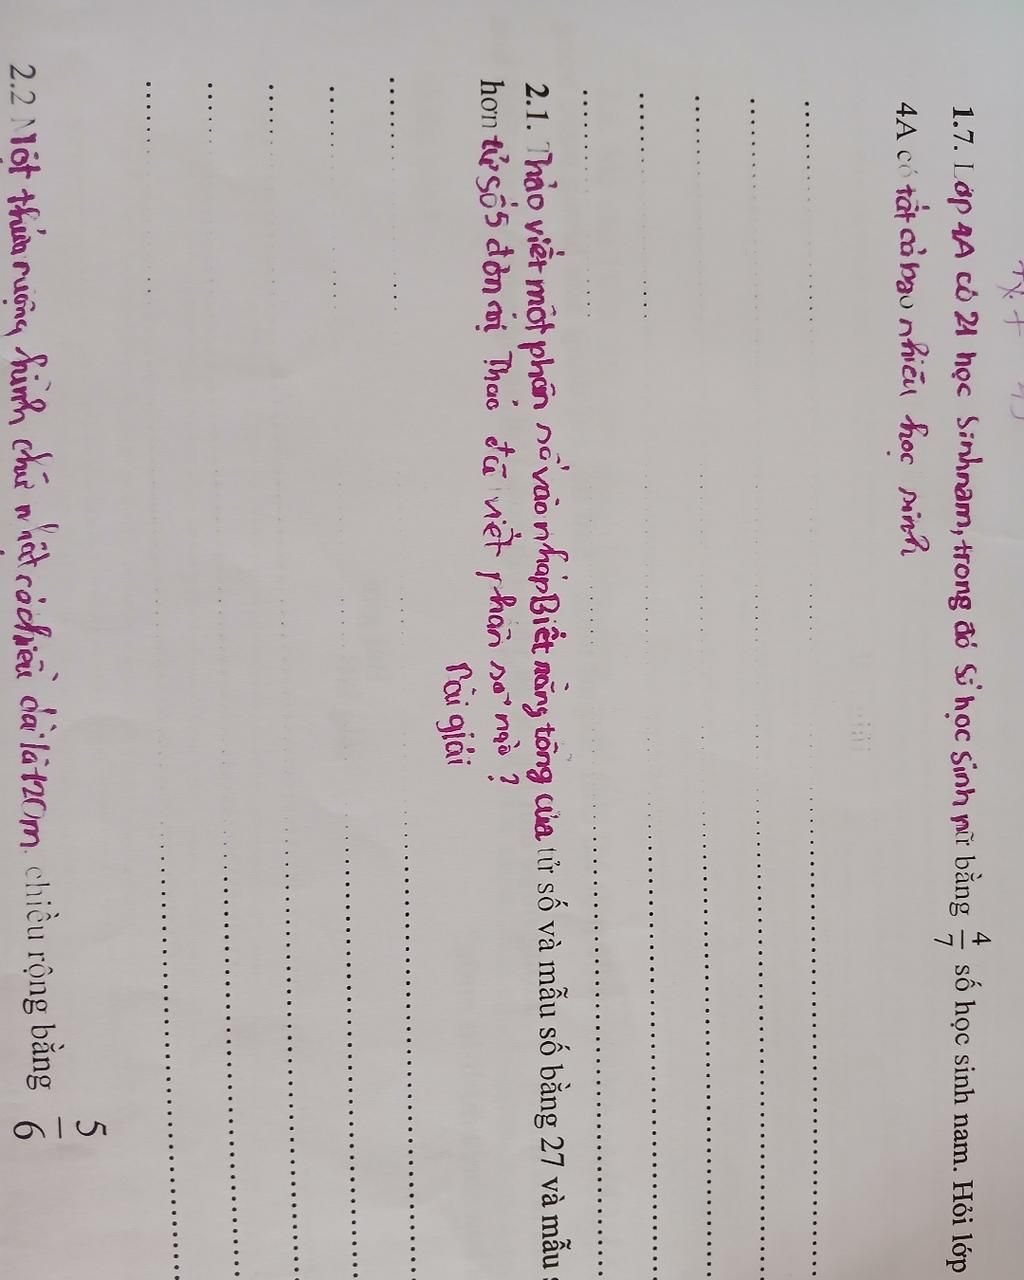 1.7. Lớp 4A có 21 học sinh nam, trong đó số học sinh nữ bằng 4/7 số học sinh nam. Hỏi lớp
4A có tất cả bao nhiêu học sinh
2.1. Thảo viết một phân số vào nháp Biết rằng tổng của tử số và mẫu số bằng 27 và mẫu
hơn tử số 5 đơn vị Thảo đã viết phân số nào ?
Bài giải
2.2 Một thửa ruộng hình chữ nhật có chiều dài là 120m. chiều rộng bằng 5/6